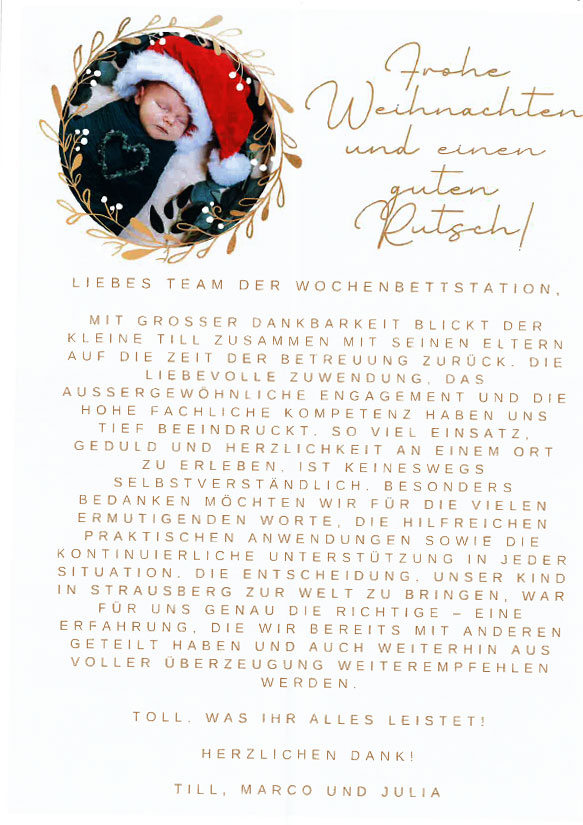 Frohe
Weihnachten
und einen
guten
Rutsch!
LIEBES TEAM DER WOCHENBETTSTATION,
MIT GROSSER DANKBARKEIT BLICKT DER
KLEINE TILL ZUSAMMEN MIT SEINEN ELTERN
AUF DIE ZEIT DER BETREUUNG ZURÜCK. DIE
LIEBEVOLLE ZUWENDUNG, DAS
AUSSERGEWÖHNLICHE ENGAGEMENT UND DIE
HOHE FACHLICHE KOMPETENZ HABEN UNS
TIEF BEEINDRUCKT. SO VIEL EINSATZ,
GEDULD UND HERZLICHKEIT AN EINEM ORT
ZU ERLEBEN, IST KEINESWEGS
SELBSTVERSTÄNDLICH. BESONDERS
BEDANKEN MÖCHTEN WIR FÜR DIE VIELEN
ERMUTIGENDEN WORTE, DIE HILFREICHEN
PRAKTISCHEN ANWENDUNGEN SOWIE DIE
KONTINUIERLICHE UNTERSTÜTZUNG IN JEDER
SITUATION. DIE ENTSCHEIDUNG, UNSER KIND
IN STRAUSBERG ZUR WELT ZU BRINGEN, WAR
FÜR UNS GENAU DIE RICHTIGE – EINE
ERFAHRUNG, DIE WIR BEREITS MIT ANDEREN
GETEILT HABEN UND AUCH WEITERHIN AUS
VOLLER ÜBERZEUGUNG WEITEREMPFEHLEN
WERDEN.
TOLL, WAS IHR ALLES LEISTET!
HERZLICHEN DANK!
TILL, MARCO UND JULIA